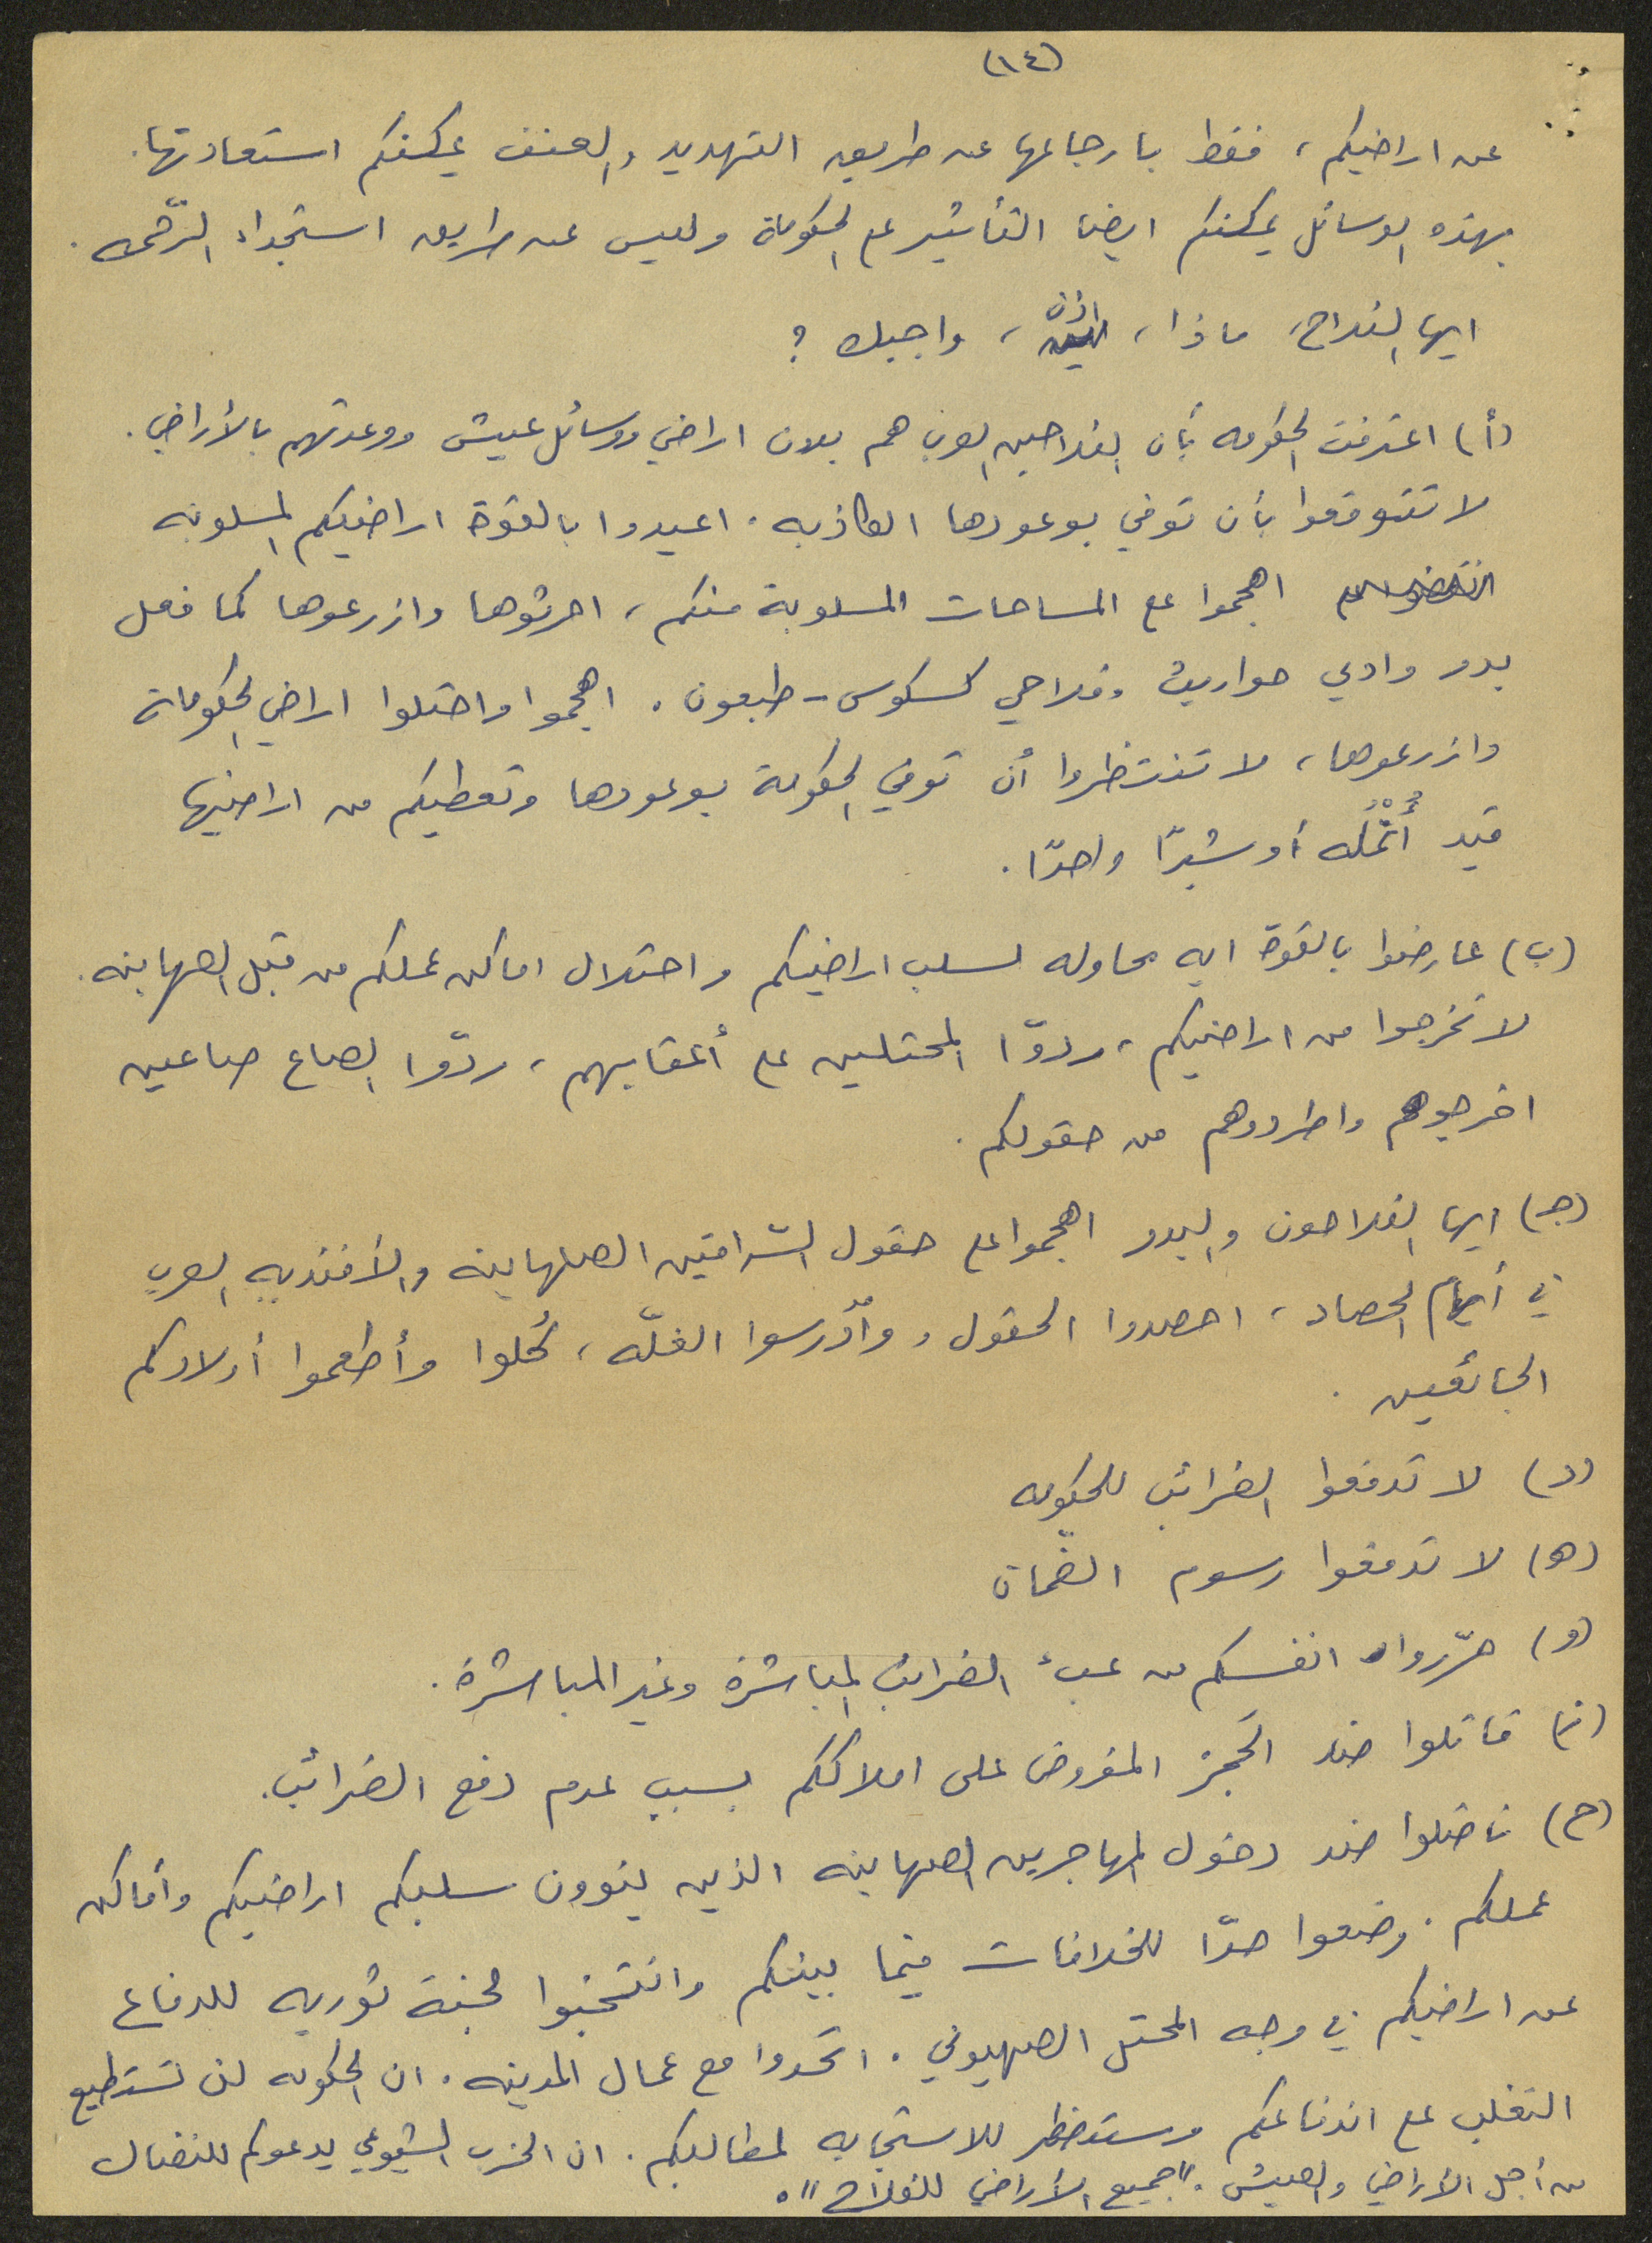 (١٤)
عن اراضيكم، فقط بارجاعها عن طريق التهديد والعنف يمكنكم استعادتها.
بهذه الوسائل يمكنكم ايضا التأثير على الحكومة وليس عن طريق استجداء الرّحمه.
ايها الفلاح، ماذا، اذن، واجبك؟
(أ) اعترفت الحكومه بأن الفلاحين العرب هم بدون اراضي ووسائل عيش ووعدتهم بالأراضي.
لا تتوقعوا بأن توفي بوعودها الكاذبه. اعيدوا بالقوة اراضيكم المسلوبه
اهجموا على المساحات المسلوبة منكم، احرثوها وازرعوها كما فعل
بدو وادي حوارِيث وفلاحي كسكوس - طبعون. اهجموا واحتلوا اراضي الحكومة
وازرعوها، لا تنتظروا أن توفي الحكومة بوعودها وتعطيكم من اراضيها
قيد أُنْمُلَه أو شبرًا واحدًا.
(ب) عارضوا بالقوة ايه محاوله لسلب اراضيكم واحتلال اماكن عملكم من قبل الصهاينه.
لا تخرجوا من اراضيكم، ردوّا المحتلين على أعقابهم، ردّوا الصاع صاعين
اخرجوهم واطردوهم من حقولكم.
(جـ) ايها الفلاحون والبدو اهجموا على حقول السّراقين الصهاينه والأفنديه العرب
في أيام الحصاد، احصدوا الحقول، وأدْرسوا الغلّه، كُلوا وأطعموا أولادكم
الجائعين.
(د) لا تدفعوا الضرائب للحكومه
(هـ) لا تدفعوا رسوم الضّمان
(و) حرّروا انفسكم من عبء الضرائب المباشرة وغير المباشرة.
(ز) قاتلوا ضد الحَجز المفروض على املاككم بسبب عدم دفع الضرائب.
(ح) ناضلوا ضد دخول المهاجرين الصهاينه الذين ينوون سلبكم اراضيكم وأماكن
عملكم. وضعوا حدّا للخلافات فيما بينكم وانتخبوا لجنة ثوريه للدفاع
عن اراضيكم في وجه المحتل الصهيوني. اتحدوا مع عمال المدينه. ان الحكومه لن تستطيع
التغلب على اندفاعكم وستضطر للاستجابه لمطالبكم. ان الحزب الشيوعي يدعوكم للنضال
من أجل الأراضي والعيش. "جميع الأراضي للفلاح".